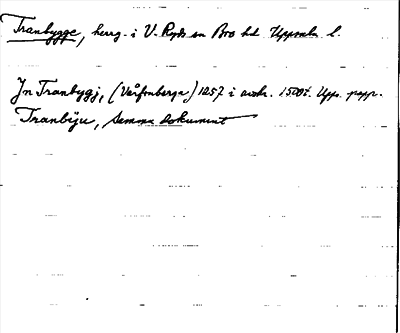 Tranbygge, herrg. i V. Ryds sn Bro hd Uppsala l.
Jn Tranbygj, (Vårfruberga) 1257 i avskr. 1500t. Upps. papp.
Tranbiju, samma dokument